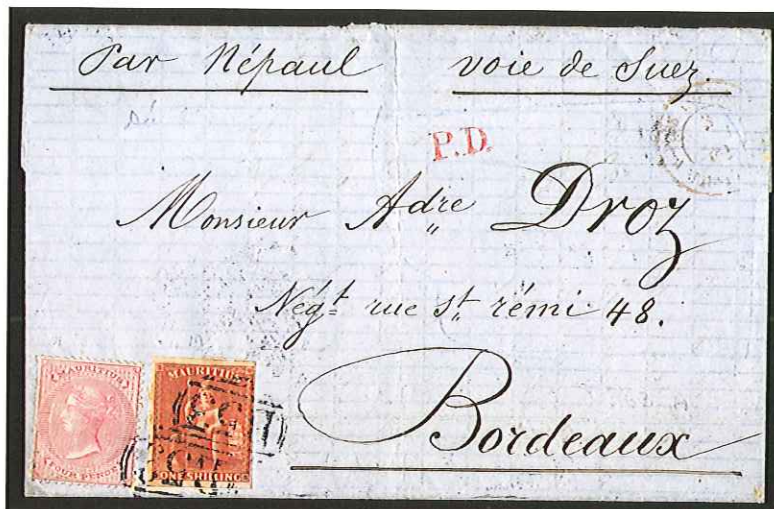 Par Népaul voie de Suez.
P.D.
Monsieur Adre Droz
Négt rue st rémi 48.
Bordeaux
MAURITIUS
FOUR PENCE
MAURITIUS
ONE SHILLING